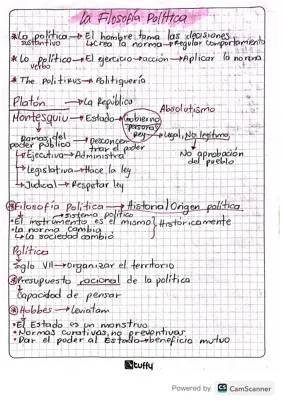 La Filosofía Política
*La política → El hombre toma las decisiones
sustantivo → Crea la norma → Regular comportamiento
*Lo político → El ejercicio → acción → Aplicar la norma
verbo
*The Politirus → Politiguería
Platón → La República
Absolutismo
Montesquiu → Estado → Gobierno
Persona
Rey → Legal, No legítimo,
Ramas del poder público → Desconcentrar el poder
No aprobación del pueblo
→ Ejecutiva → Administra
→ Legislativa → Hace la ley
→ Judical → Respetar ley
*Filosofía Política → Historial Origen política
→ sistema político
• El instrumento es el mismo } Históricamente
• La norma cambia
↳ La sociedad cambió
Política
Siglo VII → Organizar el territorio
*Presupuesto racional de la política
Capacidad de pensar
*Hobbes → Leviatam
• El Estado es un monstruo
• Normas curativas, no preventivas
• Dar el poder al Estado → beneficio mutuo
tuffy
Powered by CS CamScanner